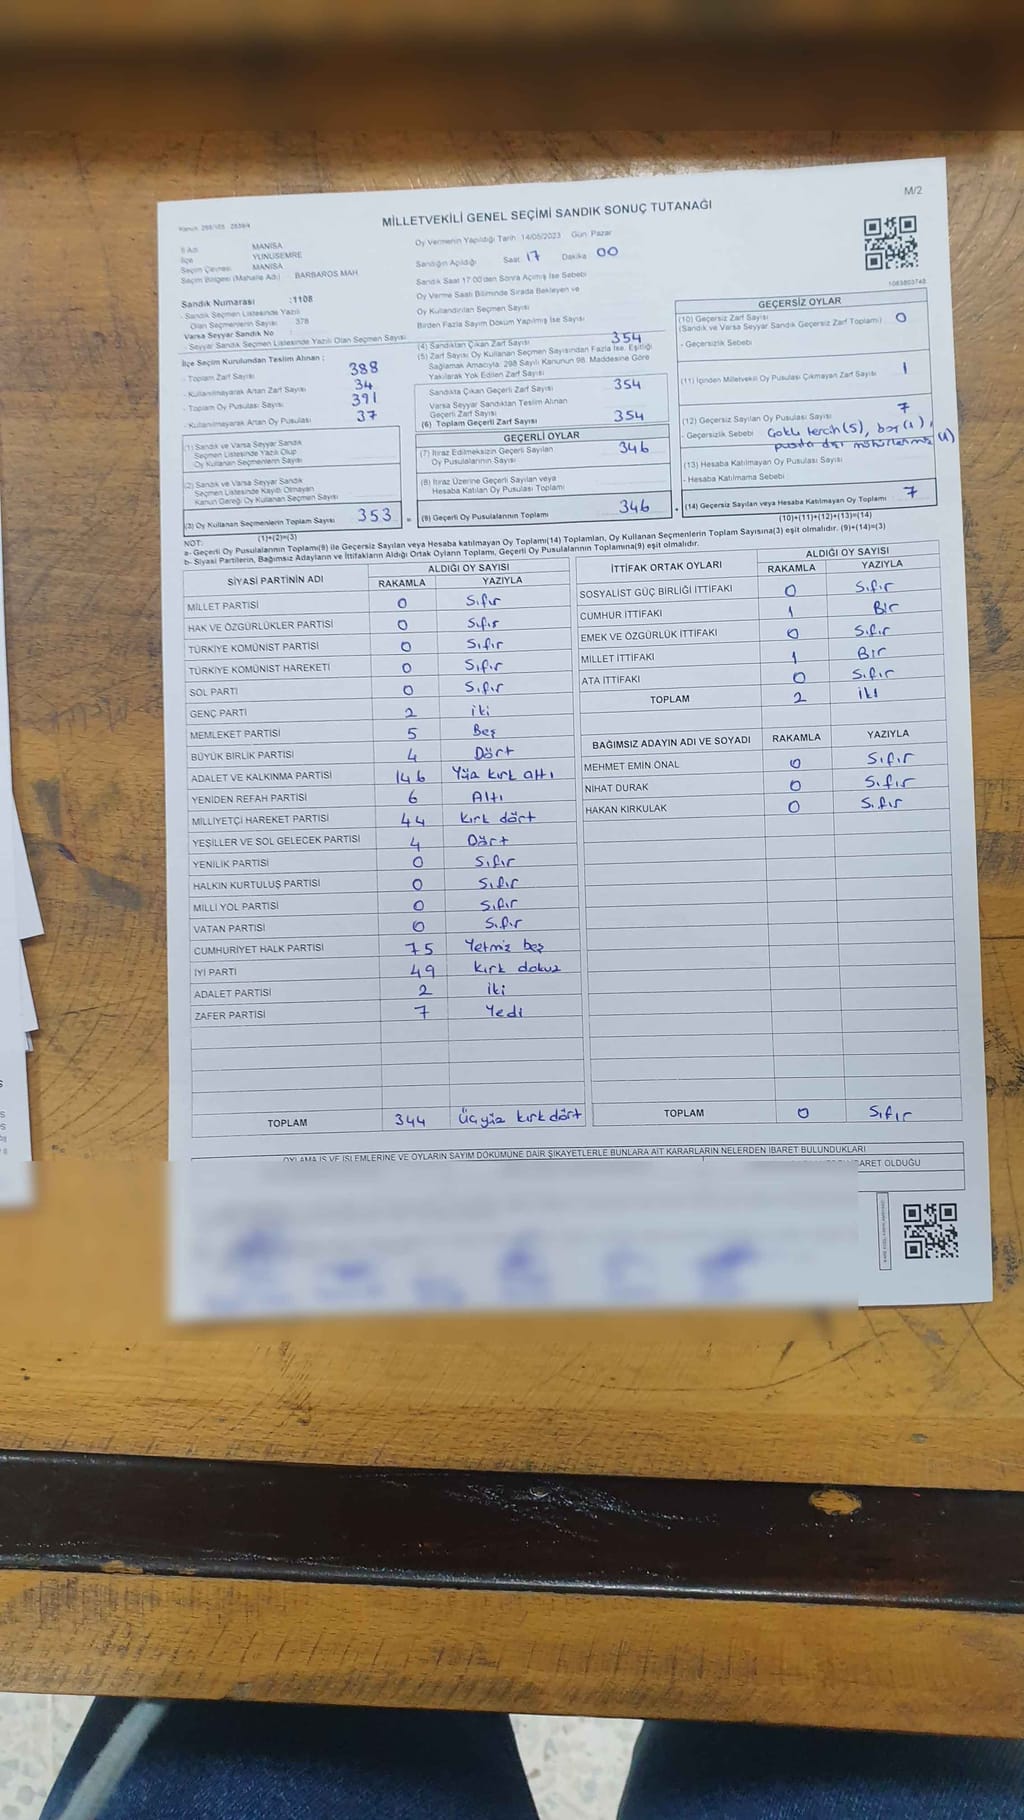 M/2
MİLLETVEKİLİ GENEL SEÇİMİ SANDIK SONUÇ TUTANAĞI
İl Adı MANİSA
İlçe YUNUSEMRE
Seçim Çevresi MANİSA
Seçim Bölgesi (Mahalle Adı) BARBAROS MAH
Oy Vermenin Yapıldığı Tarih 14/05/2023 Gün Pazar
Sandığın Açıldığı Saat 17 Dakika 00
Sandık Saat 17:00'den Sonra Açılmış İse Sebebi
Oy Verme Saati Bitiminde Sırada Bekleyen ve
Oy Kullandırılan Seçmen Sayısı
Birden Fazla Sayım Döküm Yapılmış İse Sayısı
1083803748
Sandık Numarası :1108
- Sandık Seçmen Listesinde Yazılı
Olan Seçmenlerin Sayısı 378
Varsa Seyyar Sandık No
- Seyyar Sandık Seçmen Listesinde Yazılı Olan Seçmen Sayısı
İlçe Seçim Kurulundan Teslim Alınan :
- Toplam Zarf Sayısı 388
- Kullanılmayarak Artan Zarf Sayısı 34
- Toplam Oy Pusulası Sayısı 391
- Kullanılmayarak Artan Oy Pusulası 37
(1) Sandık ve Varsa Seyyar Sandık
Seçmen Listesinde Yazılı Olup
Oy Kullanan Seçmenlerin Sayısı
(2) Sandık ve Varsa Seyyar Sandık
Seçmen Listesinde Kayıtlı Olmayan
Kanun Gereği Oy Kullanan Seçmen Sayısı
(3) Oy Kullanan Seçmenlerin Toplam Sayısı 353
(1)+(2)=(3)
(4) Sandıktan Çıkan Zarf Sayısı 354
(5) Zarf Sayısı Oy Kullanan Seçmen Sayısından Fazla İse, Eşitliği
Sağlamak Amacıyla; 298 Sayılı Kanunun 98. Maddesine Göre
Yakılarak Yok Edilen Zarf Sayısı
Sandıkta Çıkan Geçerli Zarf Sayısı 354
Varsa Seyyar Sandıktan Teslim Alınan
Geçerli Zarf Sayısı
(6) Toplam Geçerli Zarf Sayısı 354
GEÇERLİ OYLAR
(7) İtiraz Edilmeksizin Geçerli Sayılan
Oy Pusulalarının Sayısı 346
(8) İtiraz Üzerine Geçerli Sayılan veya
Hesaba Katılan Oy Pusulası Toplamı
(9) Geçerli Oy Pusulalarının Toplamı 346
GEÇERSİZ OYLAR
(10) Geçersiz Zarf Sayısı 0
(Sandık ve Varsa Seyyar Sandık Geçersiz Zarf Toplamı)
- Geçersizlik Sebebi
(11) İçinden Milletvekili Oy Pusulası Çıkmayan Zarf Sayısı 1
(12) Geçersiz Sayılan Oy Pusulası Sayısı 7
- Geçersizlik Sebebi Çoklu tercih(5), boş(1),
(1)
(13) Hesaba Katılmayan Oy Pusulası Sayısı
- Hesaba Katılmama Sebebi
(14) Geçersiz Sayılan veya Hesaba Katılmayan Oy Toplamı 7
(10)+(11)+(12)+(13)=(14)
NOT:
a- Geçerli Oy Pusulalarının Toplamı(9) ile Geçersiz Sayılan veya Hesaba katılmayan Oy Toplamı(14) Toplamları, Oy Kullanan Seçmenlerin Toplam Sayısına(3) eşit olmalıdır. (9)+(14)=(3)
b- Siyasi Partilerin, Bağımsız Adayların ve İttifakların Aldığı Ortak Oyların Toplamı, Geçerli Oy Pusulalarının Toplamına(9) eşit olmalıdır.
SİYASİ PARTİNİN ADI ALDIĞI OY SAYISI
RAKAMLA YAZIYLA
MİLLET PARTİSİ 0 Sıfır
HAK VE ÖZGÜRLÜKLER PARTİSİ 0 Sıfır
TÜRKİYE KOMÜNİST PARTİSİ 0 Sıfır
TÜRKİYE KOMÜNİST HAREKETİ 0 Sıfır
SOL PARTİ 0 Sıfır
GENÇ PARTİ 2 iki
MEMLEKET PARTİSİ 5 Beş
BÜYÜK BİRLİK PARTİSİ 4 Dört
ADALET VE KALKINMA PARTİSİ 146 Yüz kırk altı
YENİDEN REFAH PARTİSİ 6 Altı
MİLLİYETÇİ HAREKET PARTİSİ 44 kırk dört
YEŞİLLER VE SOL GELECEK PARTİSİ 4 Dört
YENİLİK PARTİSİ 0 Sıfır
HALKIN KURTULUŞ PARTİSİ 0 Sıfır
MİLLİ YOL PARTİSİ 0 Sıfır
VATAN PARTİSİ 0 Sıfır
CUMHURİYET HALK PARTİSİ 75 Yetmiş beş
İYİ PARTİ 49 kırk dokuz
ADALET PARTİSİ 2 iki
ZAFER PARTİSİ 7 Yedi
TOPLAM 344 Üçyüz kırkdört
İTTİFAK ORTAK OYLARI ALDIĞI OY SAYISI
RAKAMLA YAZIYLA
SOSYALİST GÜÇ BİRLİĞİ İTTİFAKI 0 Sıfır
CUMHUR İTTİFAKI 1 Bir
EMEK VE ÖZGÜRLÜK İTTİFAKI 0 Sıfır
MİLLET İTTİFAKI 1 Bir
ATA İTTİFAKI 0 Sıfır
TOPLAM 2 iki
BAĞIMSIZ ADAYIN ADI VE SOYADI RAKAMLA YAZIYLA
MEHMET EMİN ÖNAL 0 Sıfır
NİHAT DURAK 0 Sıfır
HAKAN KIRKULAK 0 Sıfır
TOPLAM 0 Sıfır
OYLAMA İŞ VE İŞLEMLERİNE VE OYLARIN SAYIM DÖKÜMÜNE DAİR ŞİKAYETLERLE BUNLARA AİT KARARLARIN NELERDEN İBARET BULUNDUKLARI
İBARET OLDUĞU